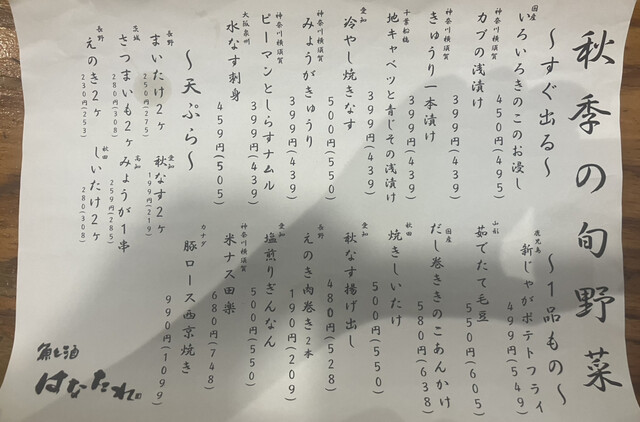 秋季の旬野菜
〜すぐ出る〜
国産
いろいろきのこのお浸し
450円(495)
神奈川横須賀
カブの浅漬け
399円(439)
神奈川横須賀
きゅうり一本漬け
399円(439)
千葉船橋
地キャベツと青じその浅漬け
399円(439)
愛知
冷やし焼きなす
500円(550)
神奈川横須賀
みょうがきゅうり
399円(439)
神奈川横須賀
ピーマンとしらすナムル
399円(439)
大阪泉州
水なす刺身
459円(505)
〜天ぷら〜
長野
まいたけ2ヶ
250円(275)
愛知
秋なす2ヶ
199円(219)
茨城
さつまいも2ヶ
280円(308)
高知
みょうが1串
259円(285)
長野
えのき2ヶ
230円(253)
秋田
しいたけ2ヶ
280(308)
〜1品もの〜
鹿児島
新じゃがポテトフライ
499円(549)
山形
茹でたて毛豆
550円(605)
国産
だし巻ききのこあんかけ
580円(638)
秋田
焼きしいたけ
500円(550)
愛知
秋なす揚げ出し
480円(528)
長野
えのき肉巻き2本
190円(209)
愛知
塩煎りぎんなん
500円(550)
神奈川横須賀
米ナス田楽
680円(748)
カナダ
豚ロース西京焼き
990円(1099)
魚と酒
はなたれ